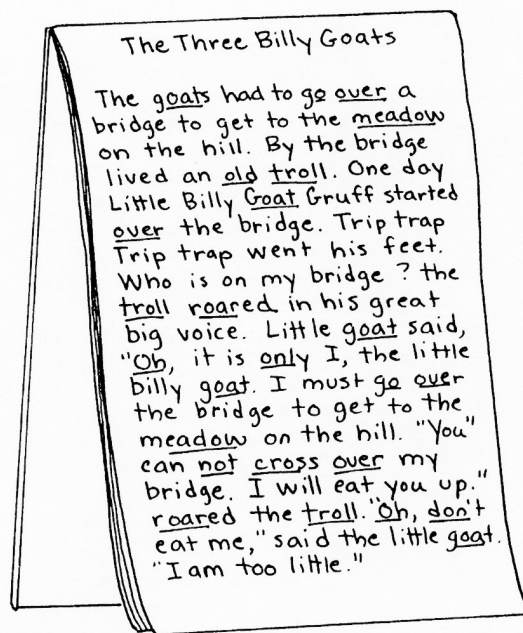 The Three Billy Goats
The goats had to go over a
bridge to get to the meadow
on the hill. By the bridge
lived an old troll. One day
Little Billy Goat Gruff started
over the bridge. Trip trap
Trip trap went his feet.
Who is on my bridge? the
troll roared in his great
big voice. Little goat said,
"Oh, it is only I, the little
billy goat. I must go over
the bridge to get to the
meadow on the hill. "You"
can not cross over my
bridge. I will eat you up."
roared the troll. "Oh, don't
eat me," said the little goat.
"I am too little."